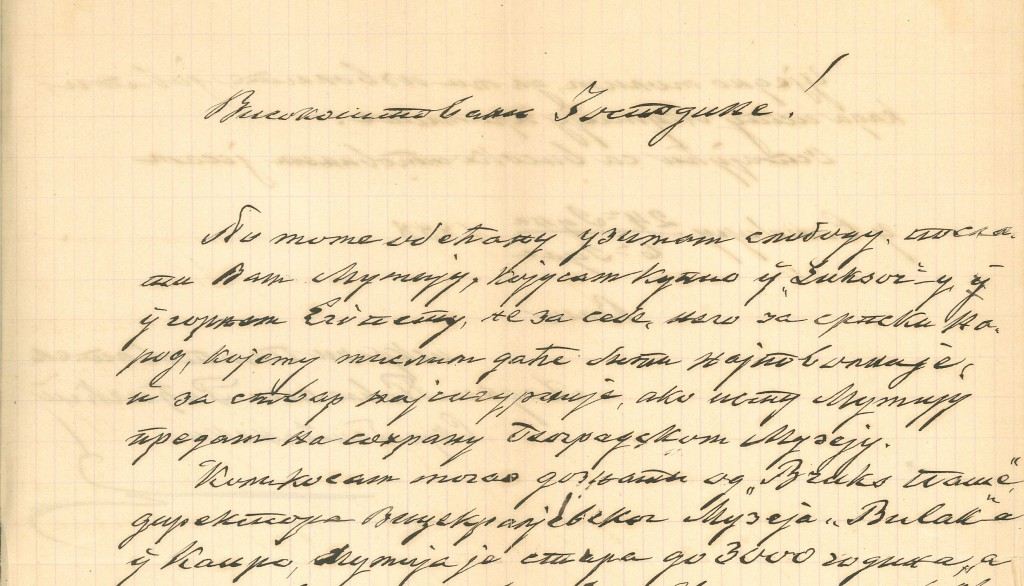 Високоштовани Господине!
По моме обећању узимам слободу посла-
ти Вам Мумију, којусам купио ў „Luksor“-у, ў
ў горњем Египету, не за себе, него за српски на-
род, којему мислим даће бити најповолније,
и за ствар најсигурније, ако исту Мумију
предам на сохрану београдском Музеју.
Коликосам могао дознати од „Brukš Паше“
директора Вицекраљевског Музеја „Bulak“ а
ў Каиро, мумија је стара до 3000 година, а